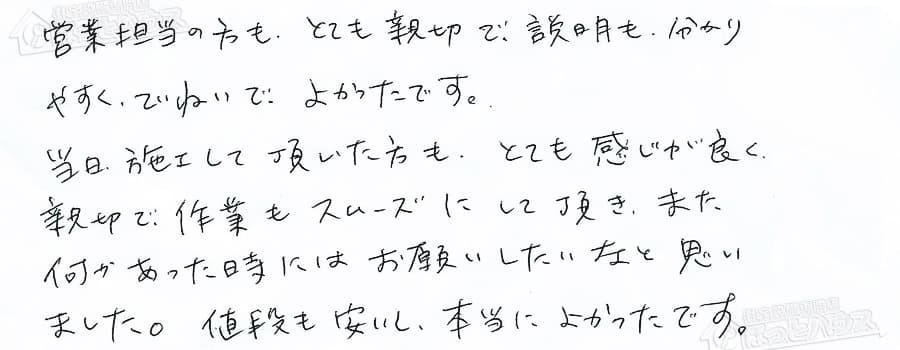 営業担当の方も、とても親切で、説明も、分かり
やすく、ていねいで、よかったです。
当日、施工して頂いた方も、とても感じが良く、
親切で、作業もスムーズにして頂き、また
何かあった時にはお願いしたいなと思い
ました。値段も安いし、本当によかったです。